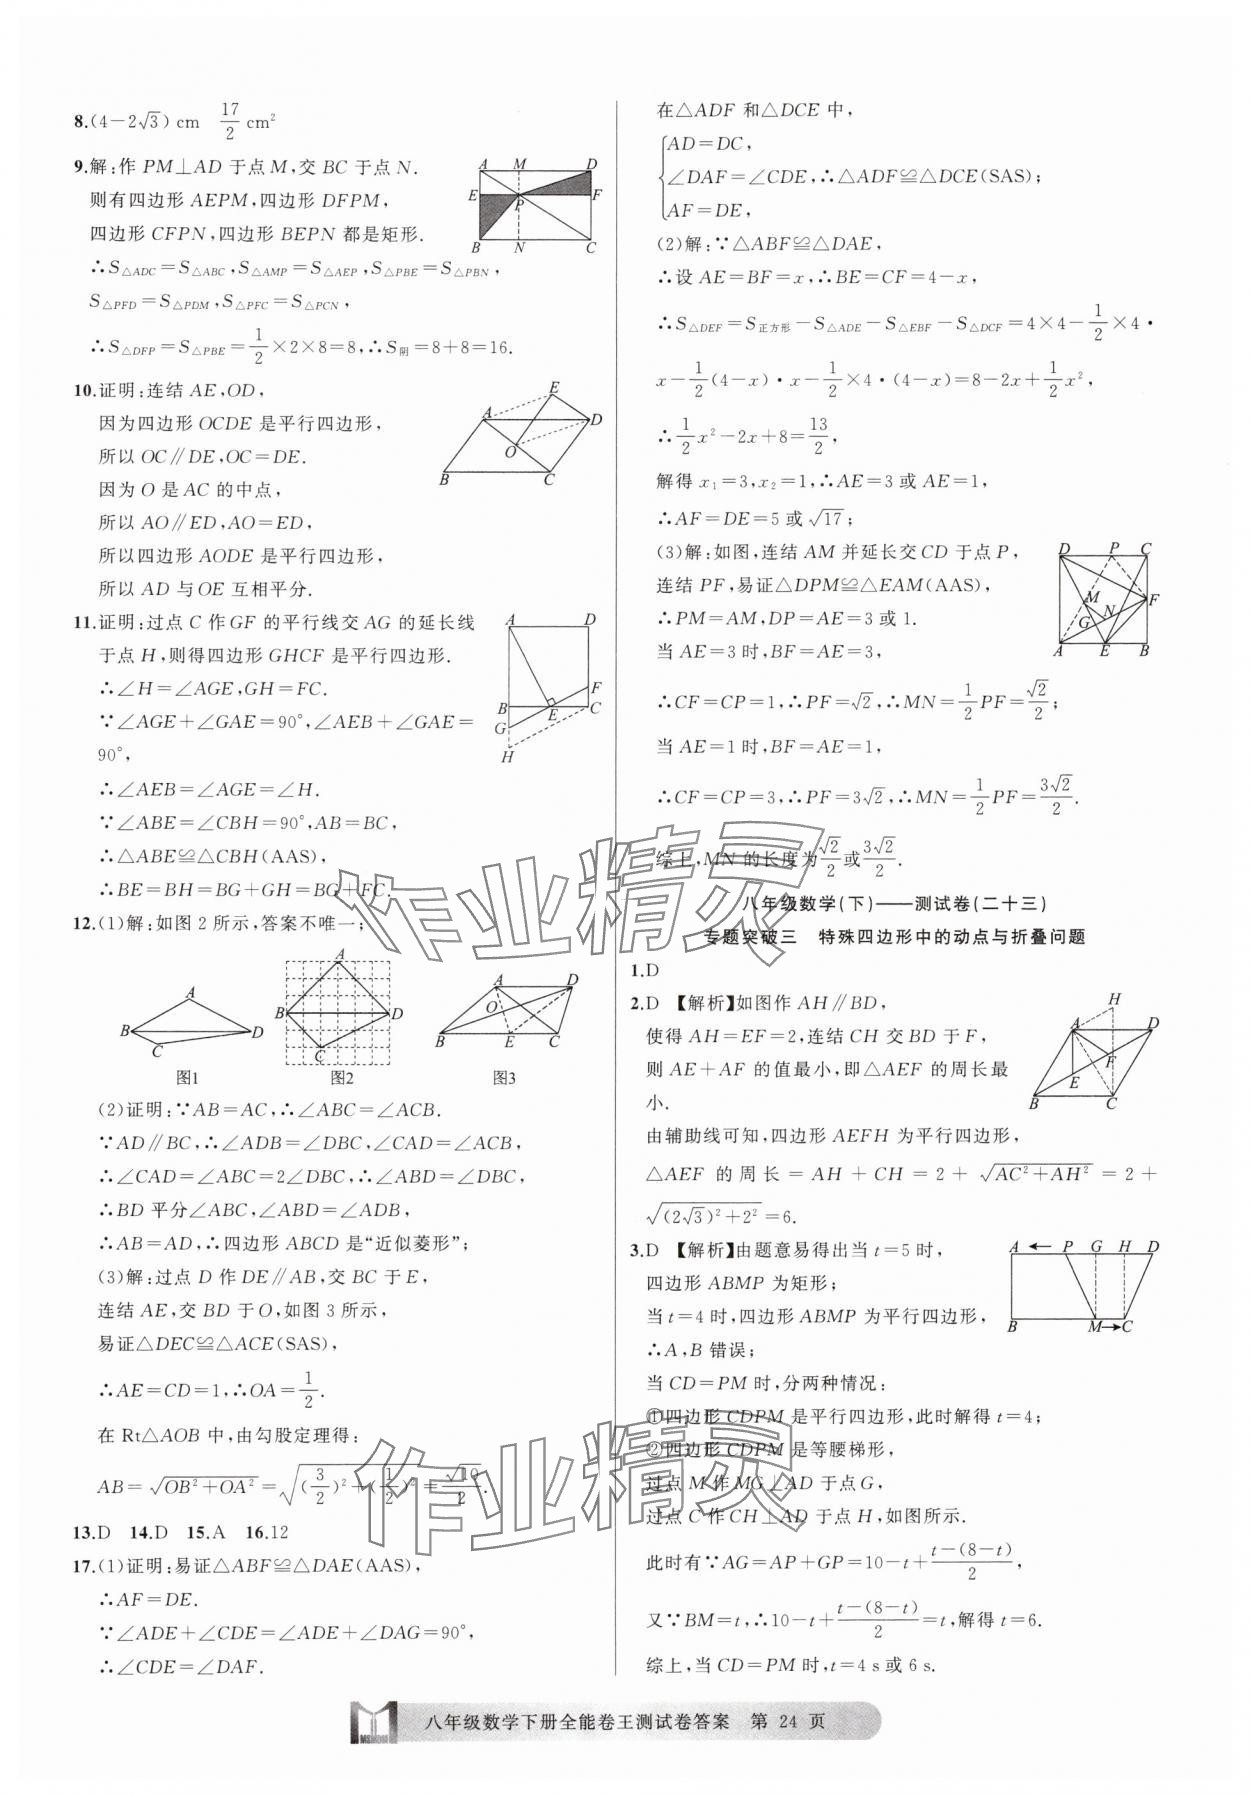 8.(4-2√3) cm  17/2 cm²
9.解:作 PM⊥AD 于点 M,交 BC 于点 N.
则有四边形 AEPM,四边形 DFPM,
四边形 CFPN,四边形 BEPN 都是矩形.
∴S△ADC=S△ABC,S△AMP=S△AEP,S△PBE=S△PBN,
S△PFD=S△PDM,S△PFC=S△PCN,
∴S△DFP=S△PBE=1/2×2×8=8,∴S阴=8+8=16.
A M D
E P F
B N C
10.证明:连结 AE,OD,
因为四边形 OCDE 是平行四边形,
所以 OC∥DE,OC=DE.
因为 O 是 AC 的中点,
所以 AO∥ED,AO=ED,
所以四边形 AODE 是平行四边形,
所以 AD 与 OE 互相平分.
E
A D
O
B C
11.证明:过点 C 作 GF 的平行线交 AG 的延长线
于点 H,则得四边形 GHCF 是平行四边形.
∴∠H=∠AGE,GH=FC.
∵∠AGE+∠GAE=90°,∠AEB+∠GAE=
90°,
∴∠AEB=∠AGE=∠H.
∵∠ABE=∠CBH=90°,AB=BC,
∴△ABE≌△CBH(AAS),
∴BE=BH=BG+GH=BG+FC.
A D
F
B E C
G
H
12.(1)解:如图 2 所示,答案不唯一;
A
B D
C
图1
A
B D
C
图2
A D
O
B E C
图3
(2)证明:∵AB=AC,∴∠ABC=∠ACB.
∵AD∥BC,∴∠ADB=∠DBC,∠CAD=∠ACB,
∴∠CAD=∠ABC=2∠DBC,∴∠ABD=∠DBC,
∴BD 平分∠ABC,∠ABD=∠ADB,
∴AB=AD,∴四边形 ABCD 是“近似菱形”;
(3)解:过点 D 作 DE∥AB,交 BC 于 E,
连结 AE,交 BD 于 O,如图 3 所示,
易证△DEC≌△ACE(SAS),
∴AE=CD=1,∴OA=1/2.
在 Rt△AOB 中,由勾股定理得:
AB=√(OB²+OA²)=√((3/2)²+(1/2)²)=√10/2.
13.D  14.D  15.A  16.12
17.(1)证明:易证△ABF≌△DAE(AAS),
∴AF=DE.
∵∠ADE+∠CDE=∠ADE+∠DAG=90°,
∴∠CDE=∠DAF.
在△ADF 和△DCE 中,
AD=DC,
∠DAF=∠CDE,∴△ADF≌△DCE(SAS);
AF=DE,
(2)解:∵△ABF≌△DAE,
∴设 AE=BF=x,∴BE=CF=4-x,
∴S△DEF=S正方形-S△ADE-S△EBF-S△DCF=4×4-1/2×4·
x-1/2(4-x)·x-1/2×4·(4-x)=8-2x+1/2x²,
∴1/2x²-2x+8=13/2,
解得 x₁=3,x₂=1,∴AE=3 或 AE=1,
∴AF=DE=5 或√17;
(3)解:如图,连结 AM 并延长交 CD 于点 P,
连结 PF,易证△DPM≌△EAM(AAS),
∴PM=AM,DP=AE=3 或 1.
当 AE=3 时,BF=AE=3,
∴CF=CP=1,∴PF=√2,∴MN=1/2PF=√2/2;
当 AE=1 时,BF=AE=1,
∴CF=CP=3,∴PF=3√2,∴MN=1/2PF=3√2/2.
综上,MN 的长度为√2/2或3√2/2.
D P C
M F
G N
A E B
八年级数学(下)——测试卷(二十三)
专题突破三  特殊四边形中的动点与折叠问题
1.D
2.D 【解析】如图作 AH∥BD,
使得 AH=EF=2,连结 CH 交 BD 于 F,
则 AE+AF 的值最小,即△AEF 的周长最
小.
由辅助线可知,四边形 AEFH 为平行四边形,
△AEF 的周长=AH+CH=2+√(AC²+AH²)=2+
√((2√3)²+2²)=6.
H
A D
F
E
B C
3.D 【解析】由题意易得出当 t=5 时,
四边形 ABMP 为矩形;
当 t=4 时,四边形 ABMP 为平行四边形,
∴A,B 错误;
当 CD=PM 时,分两种情况:
①四边形 CDPM 是平行四边形,此时解得 t=4;
②四边形 CDPM 是等腰梯形,
过点 M 作 MG⊥AD 于点 G,
过点 C 作 CH⊥AD 于点 H,如图所示,
此时有∵AG=AP+GP=10-t+(t-(8-t))/2,
又∵BM=t,∴10-t+(t-(8-t))/2=t,解得 t=6.
综上,当 CD=PM 时,t=4 s 或 6 s.
A ← P G H D
B M→C
作业精灵
作业精灵
八年级数学下册全能卷王测试卷答案  第 24 页